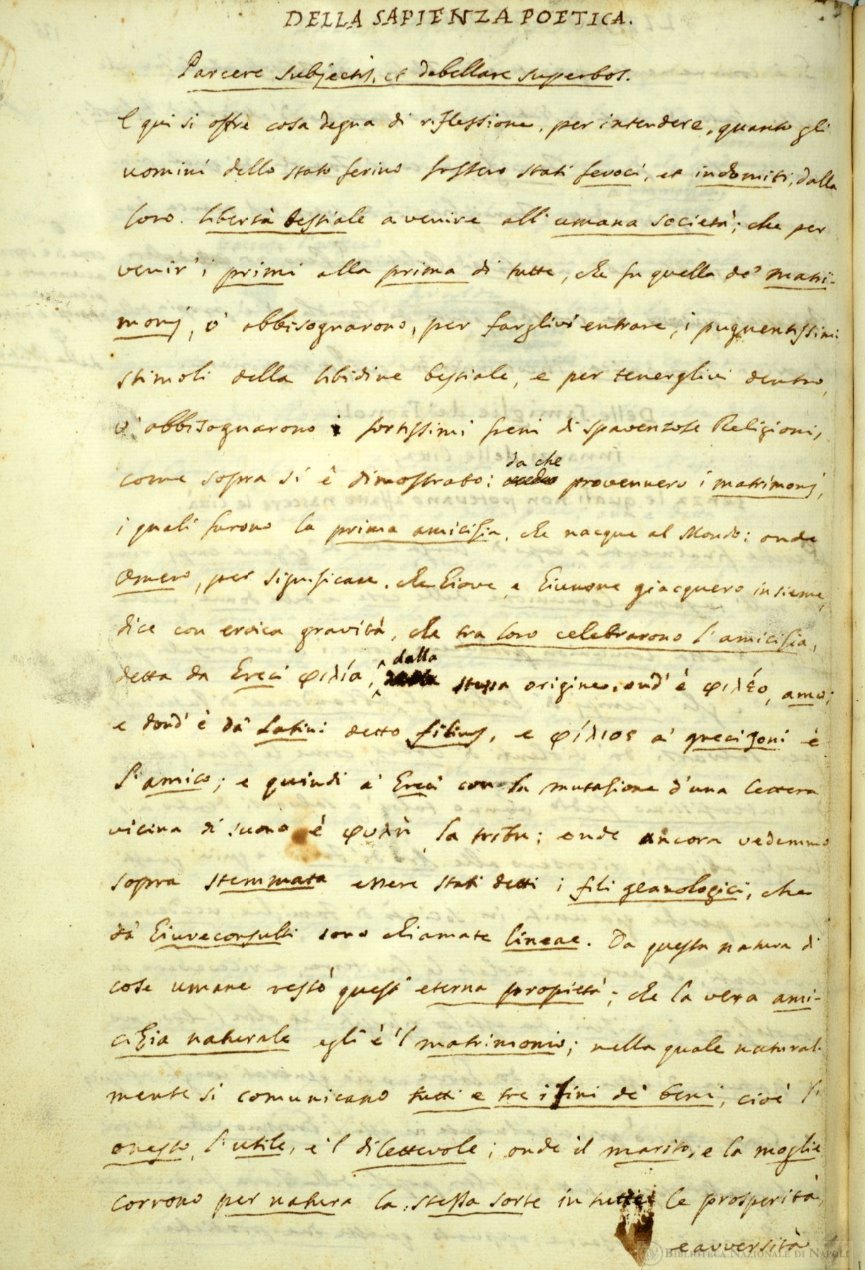 DELLA SAPIENZA POETICA.
Parcere subjectis, et debellare superbos.
E qui si offre cosa degna di riflessione, per intendere, quanto gli
uomini dello stato ferino fussero stati feroci, et indomiti, dalla
loro libertà bestiale a venire all' umana società; che per
venir' i primi alla prima di tutte, che fu quella de' matri-
monj, v' abbisognarono, per farglivi entrare, i pugnentissimi
stimoli della libidine bestiale, e per tenerglivi dentro,
v' abbisognarono i fortissimi freni di spaventose Religioni,
come sopra si è dimostrato: da che provennero i matrimonj,
i quali furono la prima amicizia, che nacque al Mondo: onde
Omero, per significare, che Giove, e Giunone giacquero insieme,
dice con eroica gravità, che tra loro celebrarono l' amicizia,
detta da' Greci φιλία, dalla stessa origine, ond' è φιλέο, amo;
e dond' è da' Latini detto filius, e φίλιος a' greci Jonj è
l' amico; e quindi a' Greci con la mutazione d' una lettera
vicina di suono è φυλὴ, la tribu; onde ancora vedemmo
sopra stemmata essere stati detti i fili geanologici, che
da' Giureconsulti sono chiamate lineae. Da questa natura di
cose umane restò quest' eterna propietà; che la vera ami-
cizia naturale egli è 'l matrimonio; nella quale natural-
mente si comunicano tutti e tre i fini de' beni, cioè l'
onesto, l' utile, e 'l dilettevole; onde il marito, e la moglie
corrono per natura la stessa sorte in tutte le prosperità,
e avversità
BIBLIOTECA NAZIONALE DI NAPOLI